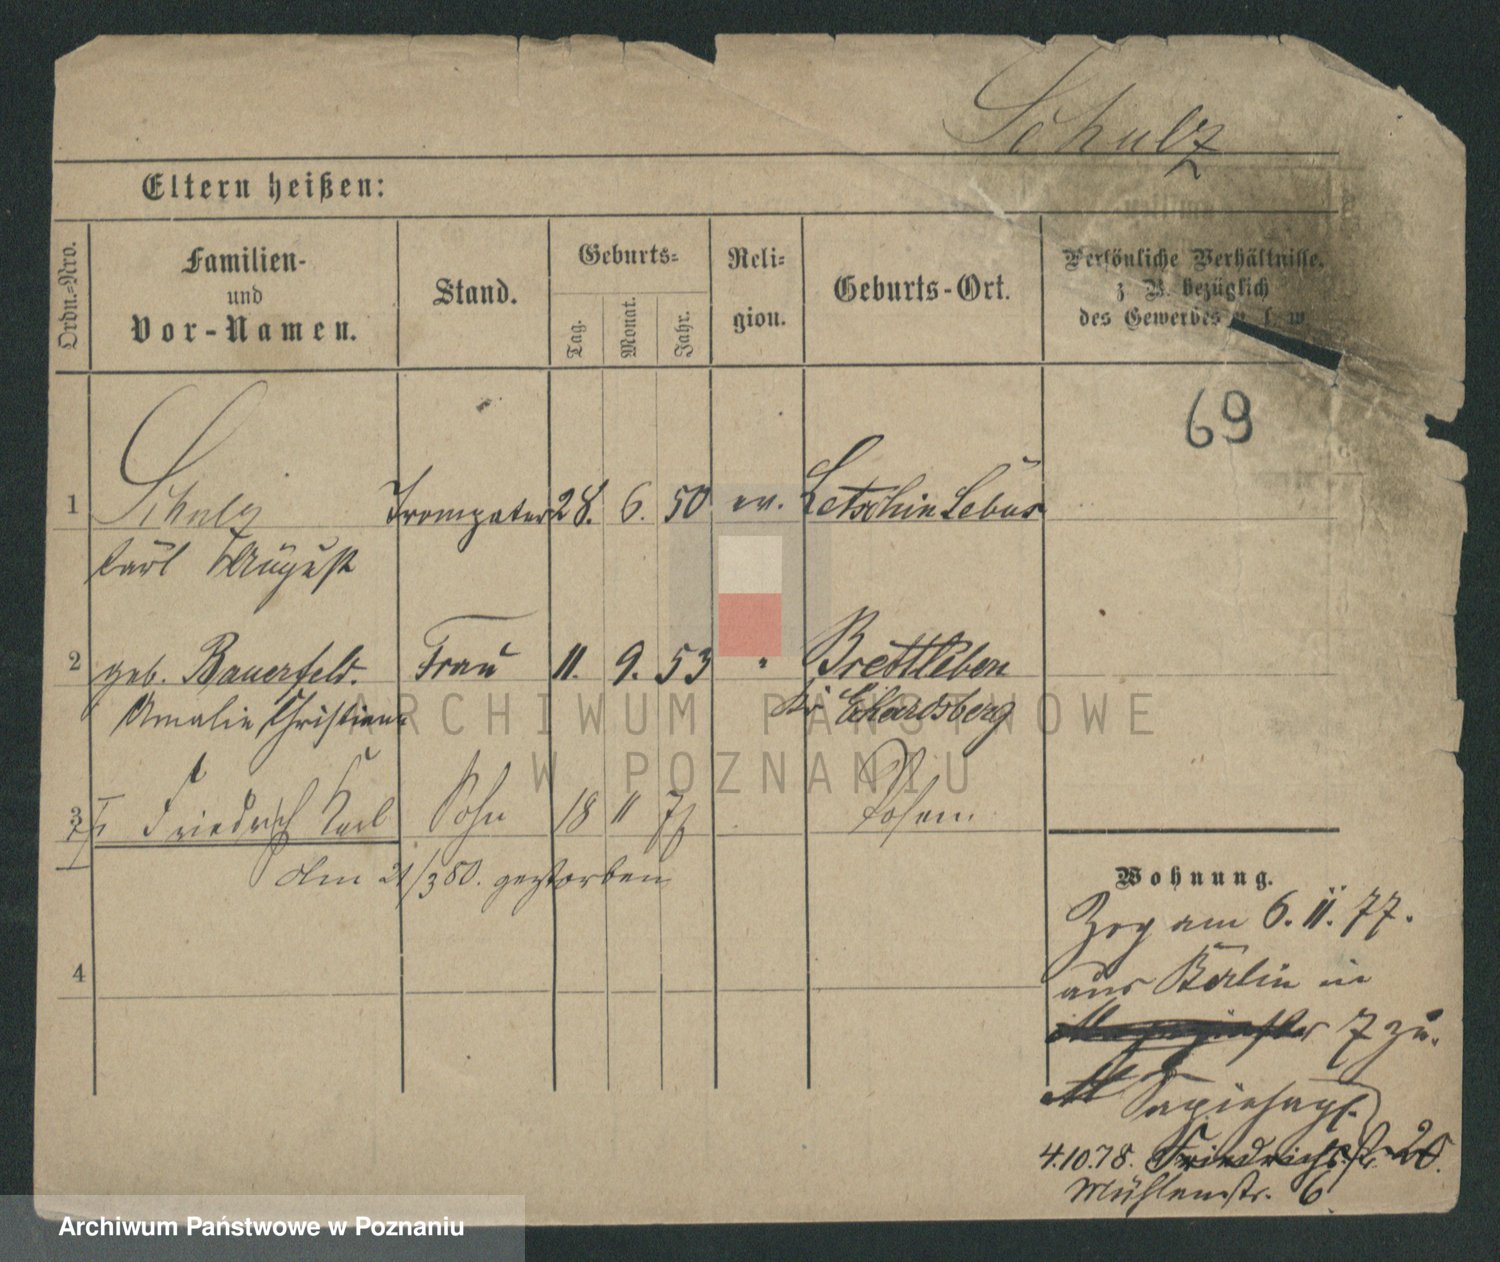 Schulz
Eltern heißen:
Ordn.-Nro.
Familien-
und
Vor-Namen.
Stand.
Geburts-
Tag.
Monat.
Jahr.
Reli-
gion.
Geburts-Ort.
Persönliche Verhältnisse.
z. B. bezüglich
des Gewerbes u. s. w.
69
1 Schulz Trompeter 28. 6. 50 ev. Letschin Lebus
Carl August
2 geb. Bauerfeld. Frau 11. 9. 53 " Brettleben
Amalie Christiane Kr Ekardsberg
3 Friedrich Karl Sohn 18 11 77 Posen
Am 21/3 80. gestorben
4
Wohnung.
Zog am 6. 11. 77.
aus Berlin in
7 zu.
Sapiehapl.
4.10.78. Friedrichstr. 20.
Mühlenstr. 6
ARCHIWUM PAŃSTWOWE
W POZNANIU
Archiwum Państwowe w Poznaniu